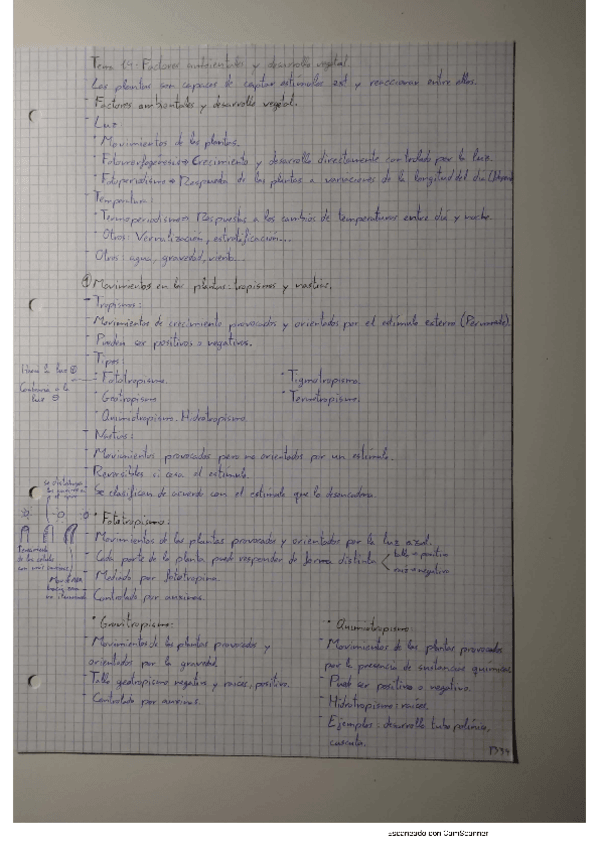 Tema 19: Factores ambientales y desarrollo vegetal
Las plantas son capaces de captar estímulos ext y reaccionar entre ellos.
- Factores ambientales y desarrollo vegetal.
- Luz
· Movimientos de las plantas.
· Fotomorfogenesis → Crecimiento y desarrollo directamente controlado por la luz.
· Fotoperiodismo → Respuesta de las plantas a variaciones de la longitud del día
- Temperatura:
· Termoperiodismo → Respuestas a los cambios de temperaturas entre día y noche.
· Otros: Vernalización, estratificación...
- Otros: agua, gravedad, viento...
① Movimientos en las plantas: tropismos y nastias.
- Tropismos:
- Movimientos de crecimiento provocados y orientados por el estímulo externo (Permanente).
- Pueden ser positivos o negativos.
- Tipos:
Hacia la luz ⊕
Contraria a la luz ⊖
· Fototropismo. · Tigmotropismo.
· Geotropismo · Termotropismo.
· Quimiotropismo. Hidrotropismo
- Nastias:
- Movimientos provocados pero no orientados por un estímulo.
- Reversibles si cesa el estímulo.
- Se clasifican de acuerdo con el estímulo que lo desencadena.
· Fototropismo:
- Movimientos de las plantas provocados y orientados por la luz azul.
- Cada parte de la planta puede responder de forma distinta < tallo → positivo
raíz → negativo
- Mediado por fototropina.
- Controlado por auxinas.
· Gravitropismo:
- Movimientos de las plantas provocados y
orientados por la gravedad.
- Tallo geotropismo negativo y raíces, positivo.
- Controlado por auxinas.
· Quimiotropismo:
- Movimientos de las plantas provocados
por la presencia de sustancias químicas.
- Puede ser positivo o negativo.
- Hidrotropismo: raíces.
- Ejemplos: desarrollo tubo polínico,
cuscuta.
Escaneado con CamScanner